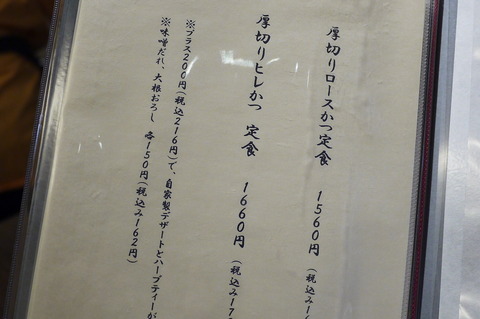 厚切りロースかつ定食 1560円 (税込み16
厚切りヒレかつ 定食 1660円 (税込み17
※プラス200円(税込216円)で、自家製デザートとハーブティーが
※味噌だれ、大根おろし 各150円(税込み162円)